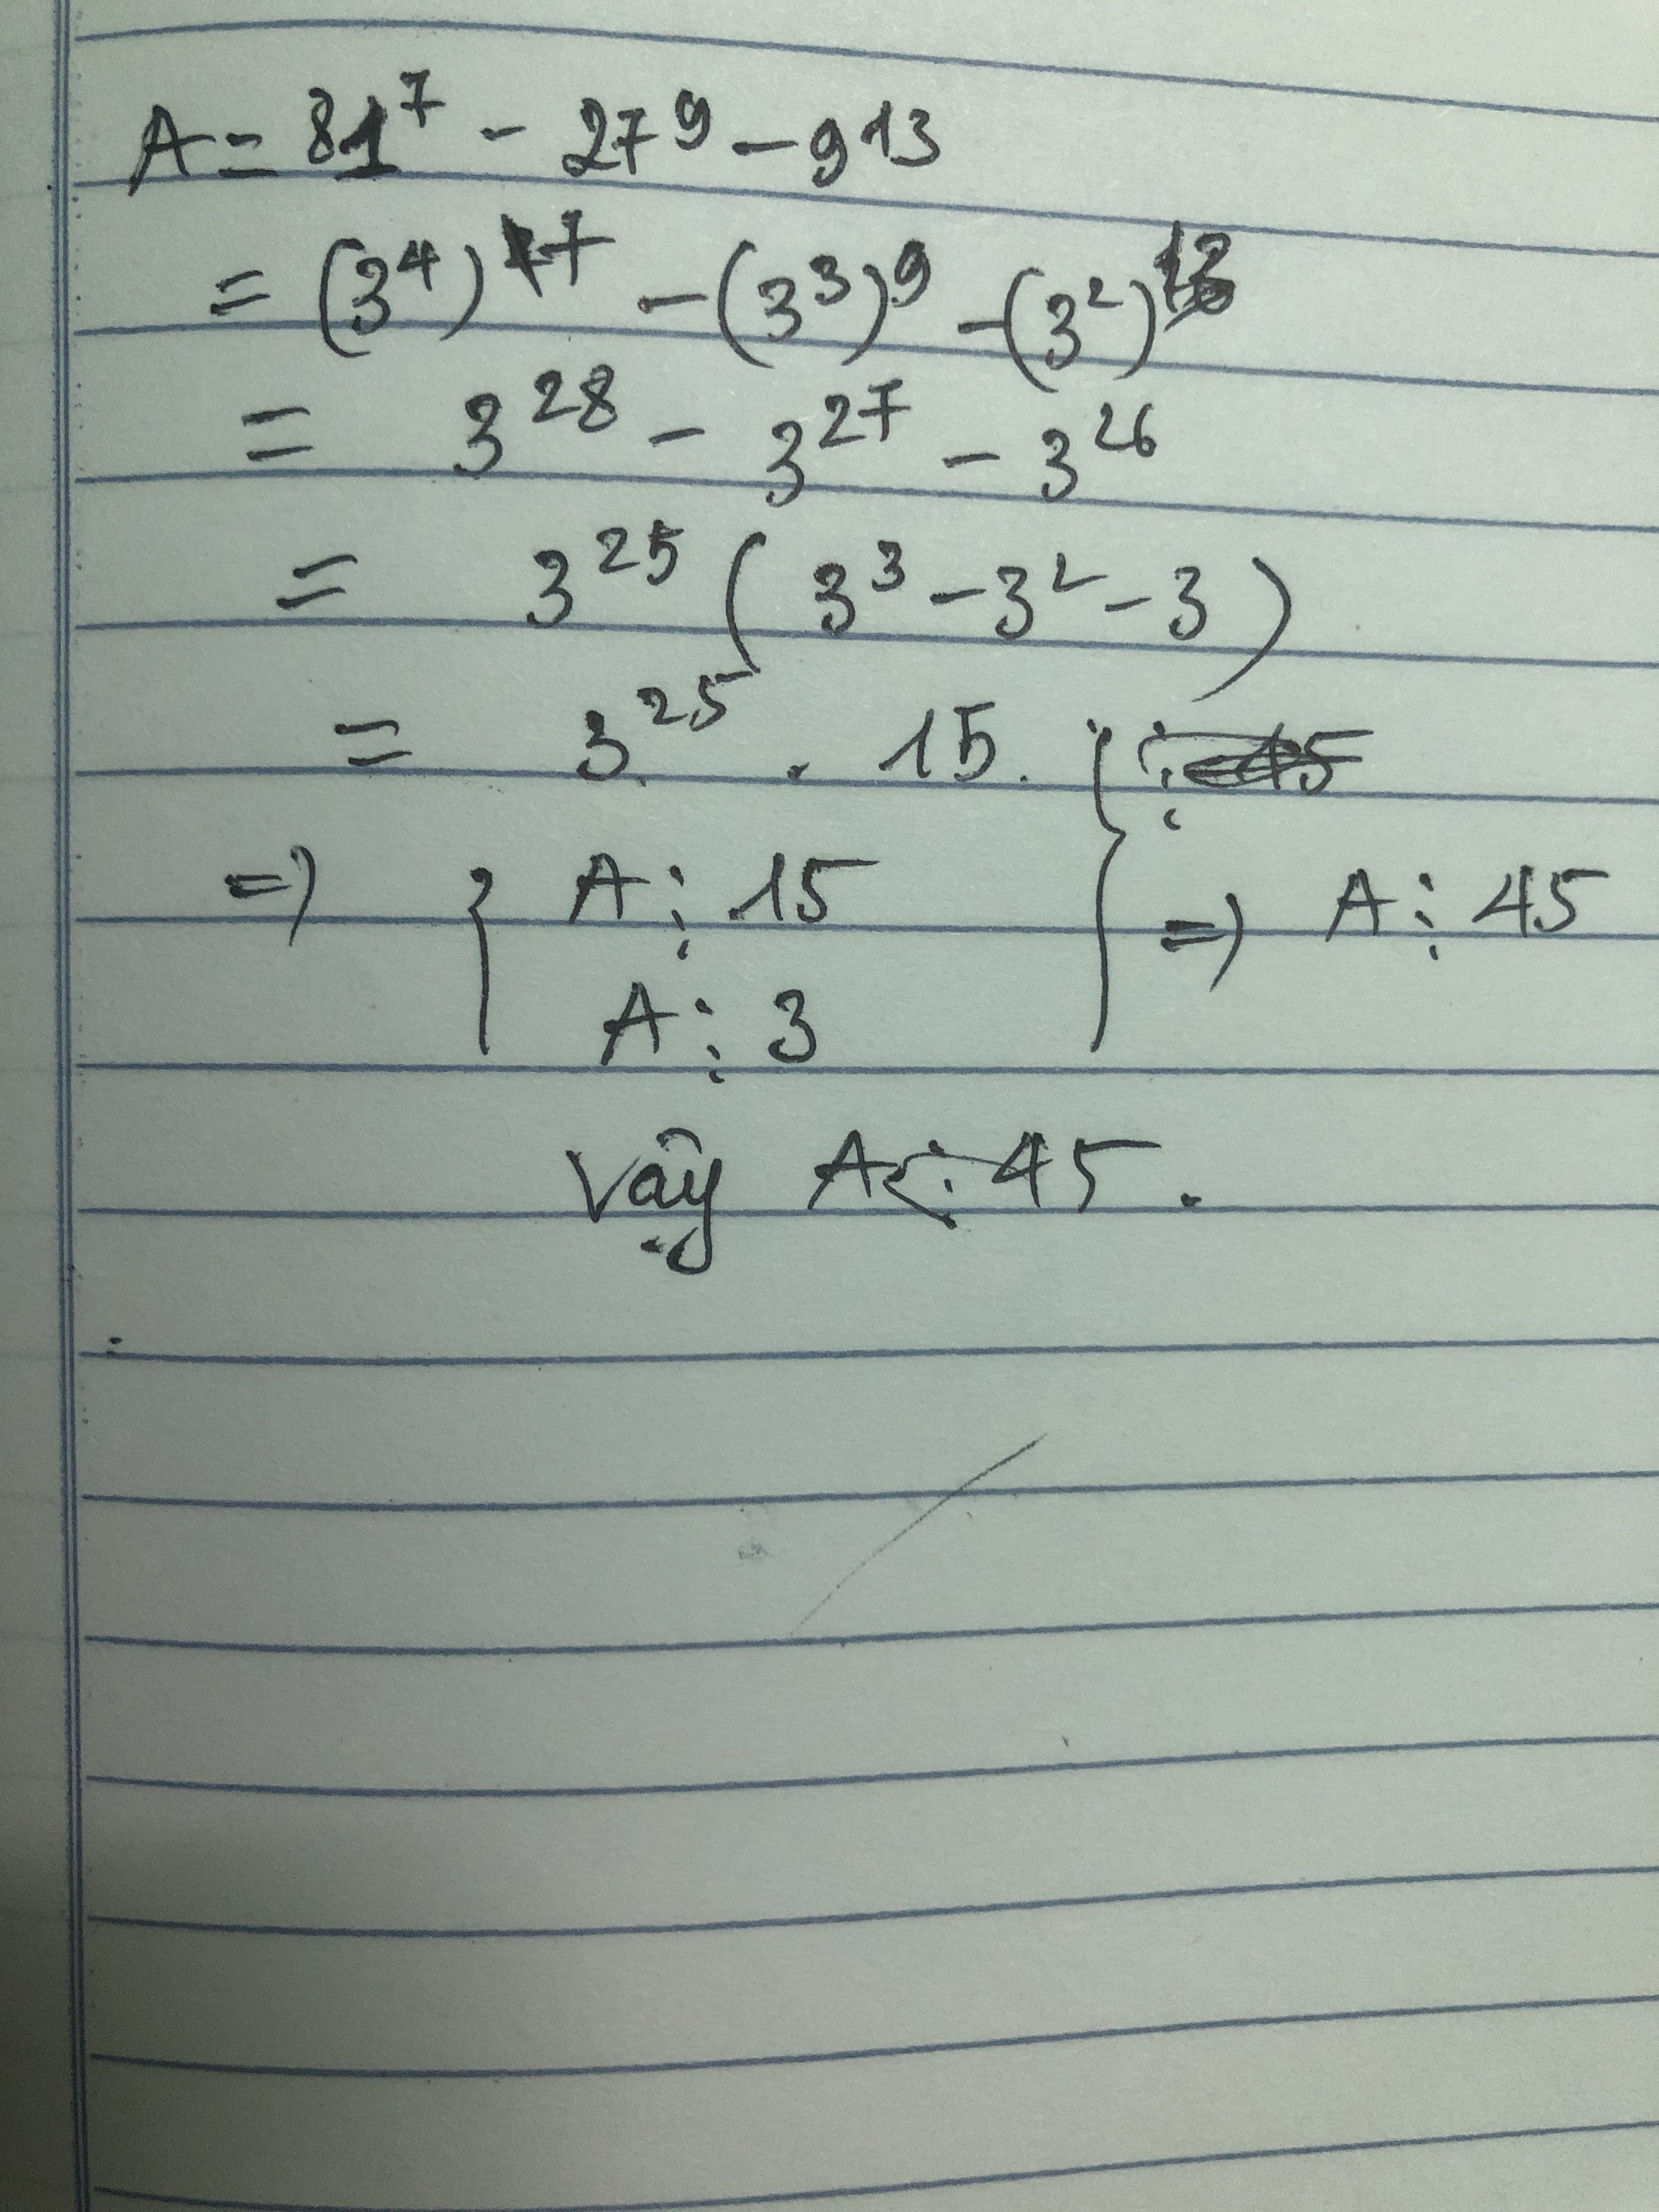 A = 81⁷ - 27⁹ - 9¹³
= (3⁴)⁷ - (3³)⁹ - (3²)¹³
= 3²⁸ - 3²⁷ - 3²⁶
= 3²⁵ ( 3³ - 3² - 3 )
= 3²⁵ . 15.
=> { A ⋮ 15 } => A ⋮ 45
A ⋮ 3
Vậy A ⋮ 45 .